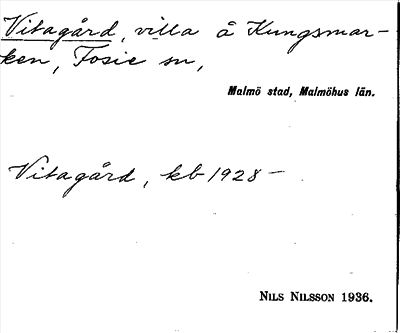 Vitagård, villa å Kungsmar-
ken, Fosie sn,
Malmö stad, Malmöhus län.
Vitagård, kb 1928 –
NILS NILSSON 1936.